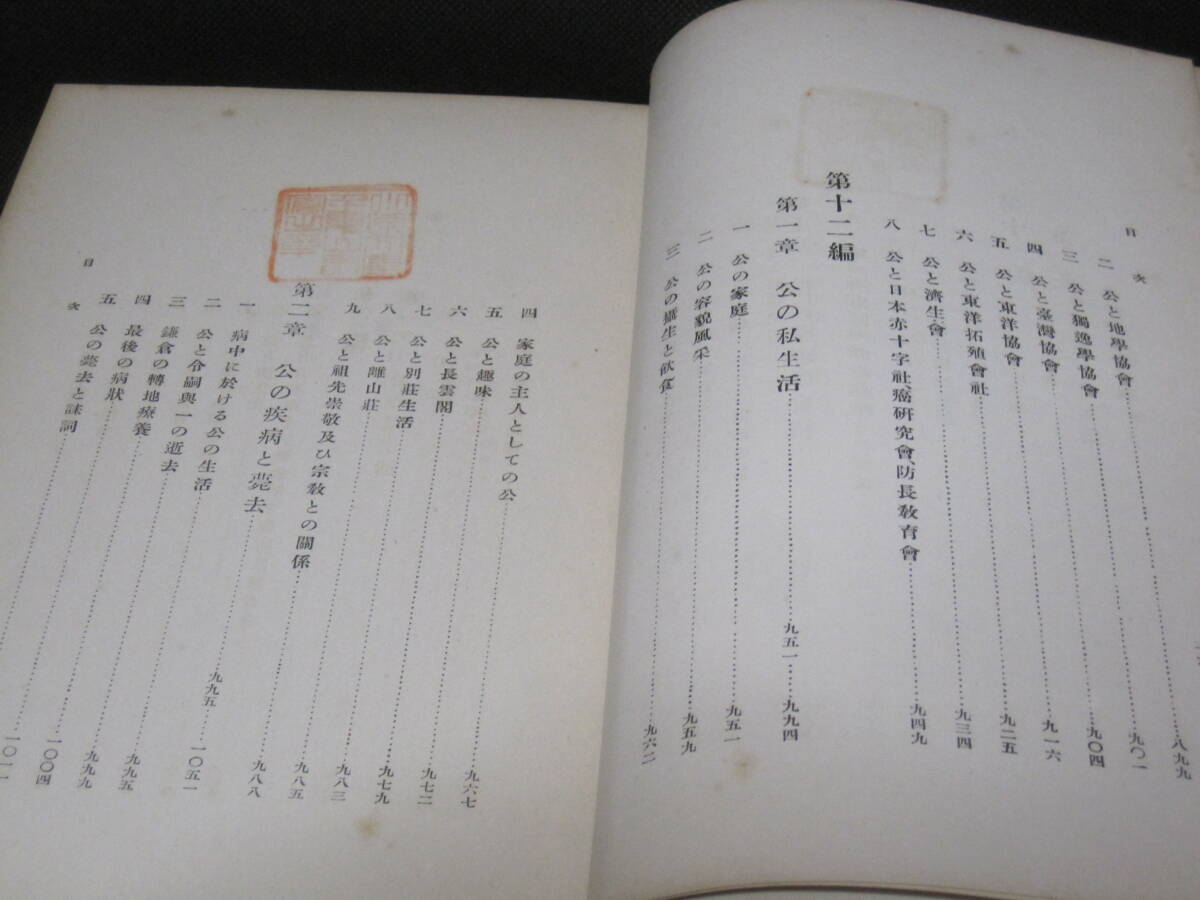 目次
二 公と地學協會……八九九
三 公と獨逸學協會……九〇一
四 公と臺灣協會……九〇四
五 公と東洋協會……九一六
六 公と東洋拓殖會社……九二五
七 公と濟生會……九三四
八 公と日本赤十字社、癌硏究會、防長敎育會……九四九
第十二編
第一章 公の私生活……九五一 九九四
一 公の家庭……九五一
二 公の容貌風采……九五九
三 公の攝生と飮食……九六二
四 家庭の主人としての公……九六七
五 公と趣味……九七二
六 公と長雲閣……九七九
七 公と別莊生活……九八三
八 公と離山莊……九八五
九 公と祖先崇敬及び宗敎との關係……九八八
第二章 公の疾病と薨去……九九五……一〇五一
一 病中に於ける公の生活……九九五
二 公と令嗣與一の逝去……九九九
三 鎌倉の轉地療養……一〇〇四
四 最後の病狀……一〇一一
五 公の薨去と誄詞……
目次